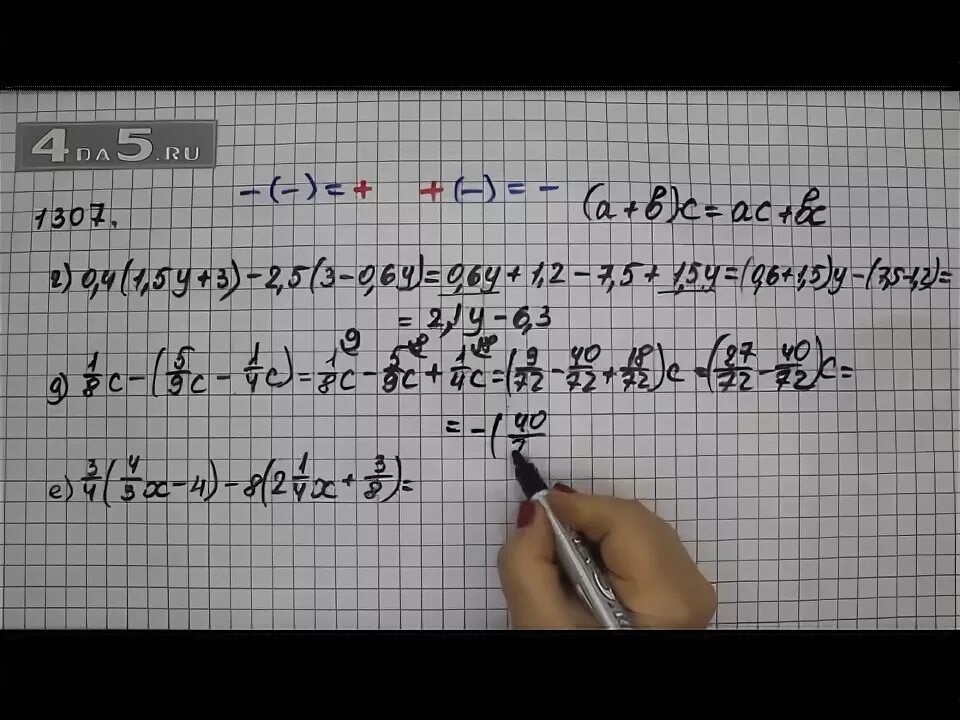 4DA5.RU
-(-)=+ +(-)=- (a+b)c=ac+bc
1307.
г) 0,4(1,5y+3)-2,5(3-0,6y)=0,6y+1,2-7,5+1,5y=(0,6+1,5)y-(7,5-1,2)=
= 2,1y-6,3
д) 1/8c-(5/9c-1/4c)=1/8c-5/9c+1/4c=(9/72-40/72+18/72)c=(27/72-40/72)c=
=-(40/7
е) 3/4(4/3x-4)-8(2 1/4x+3/8)=